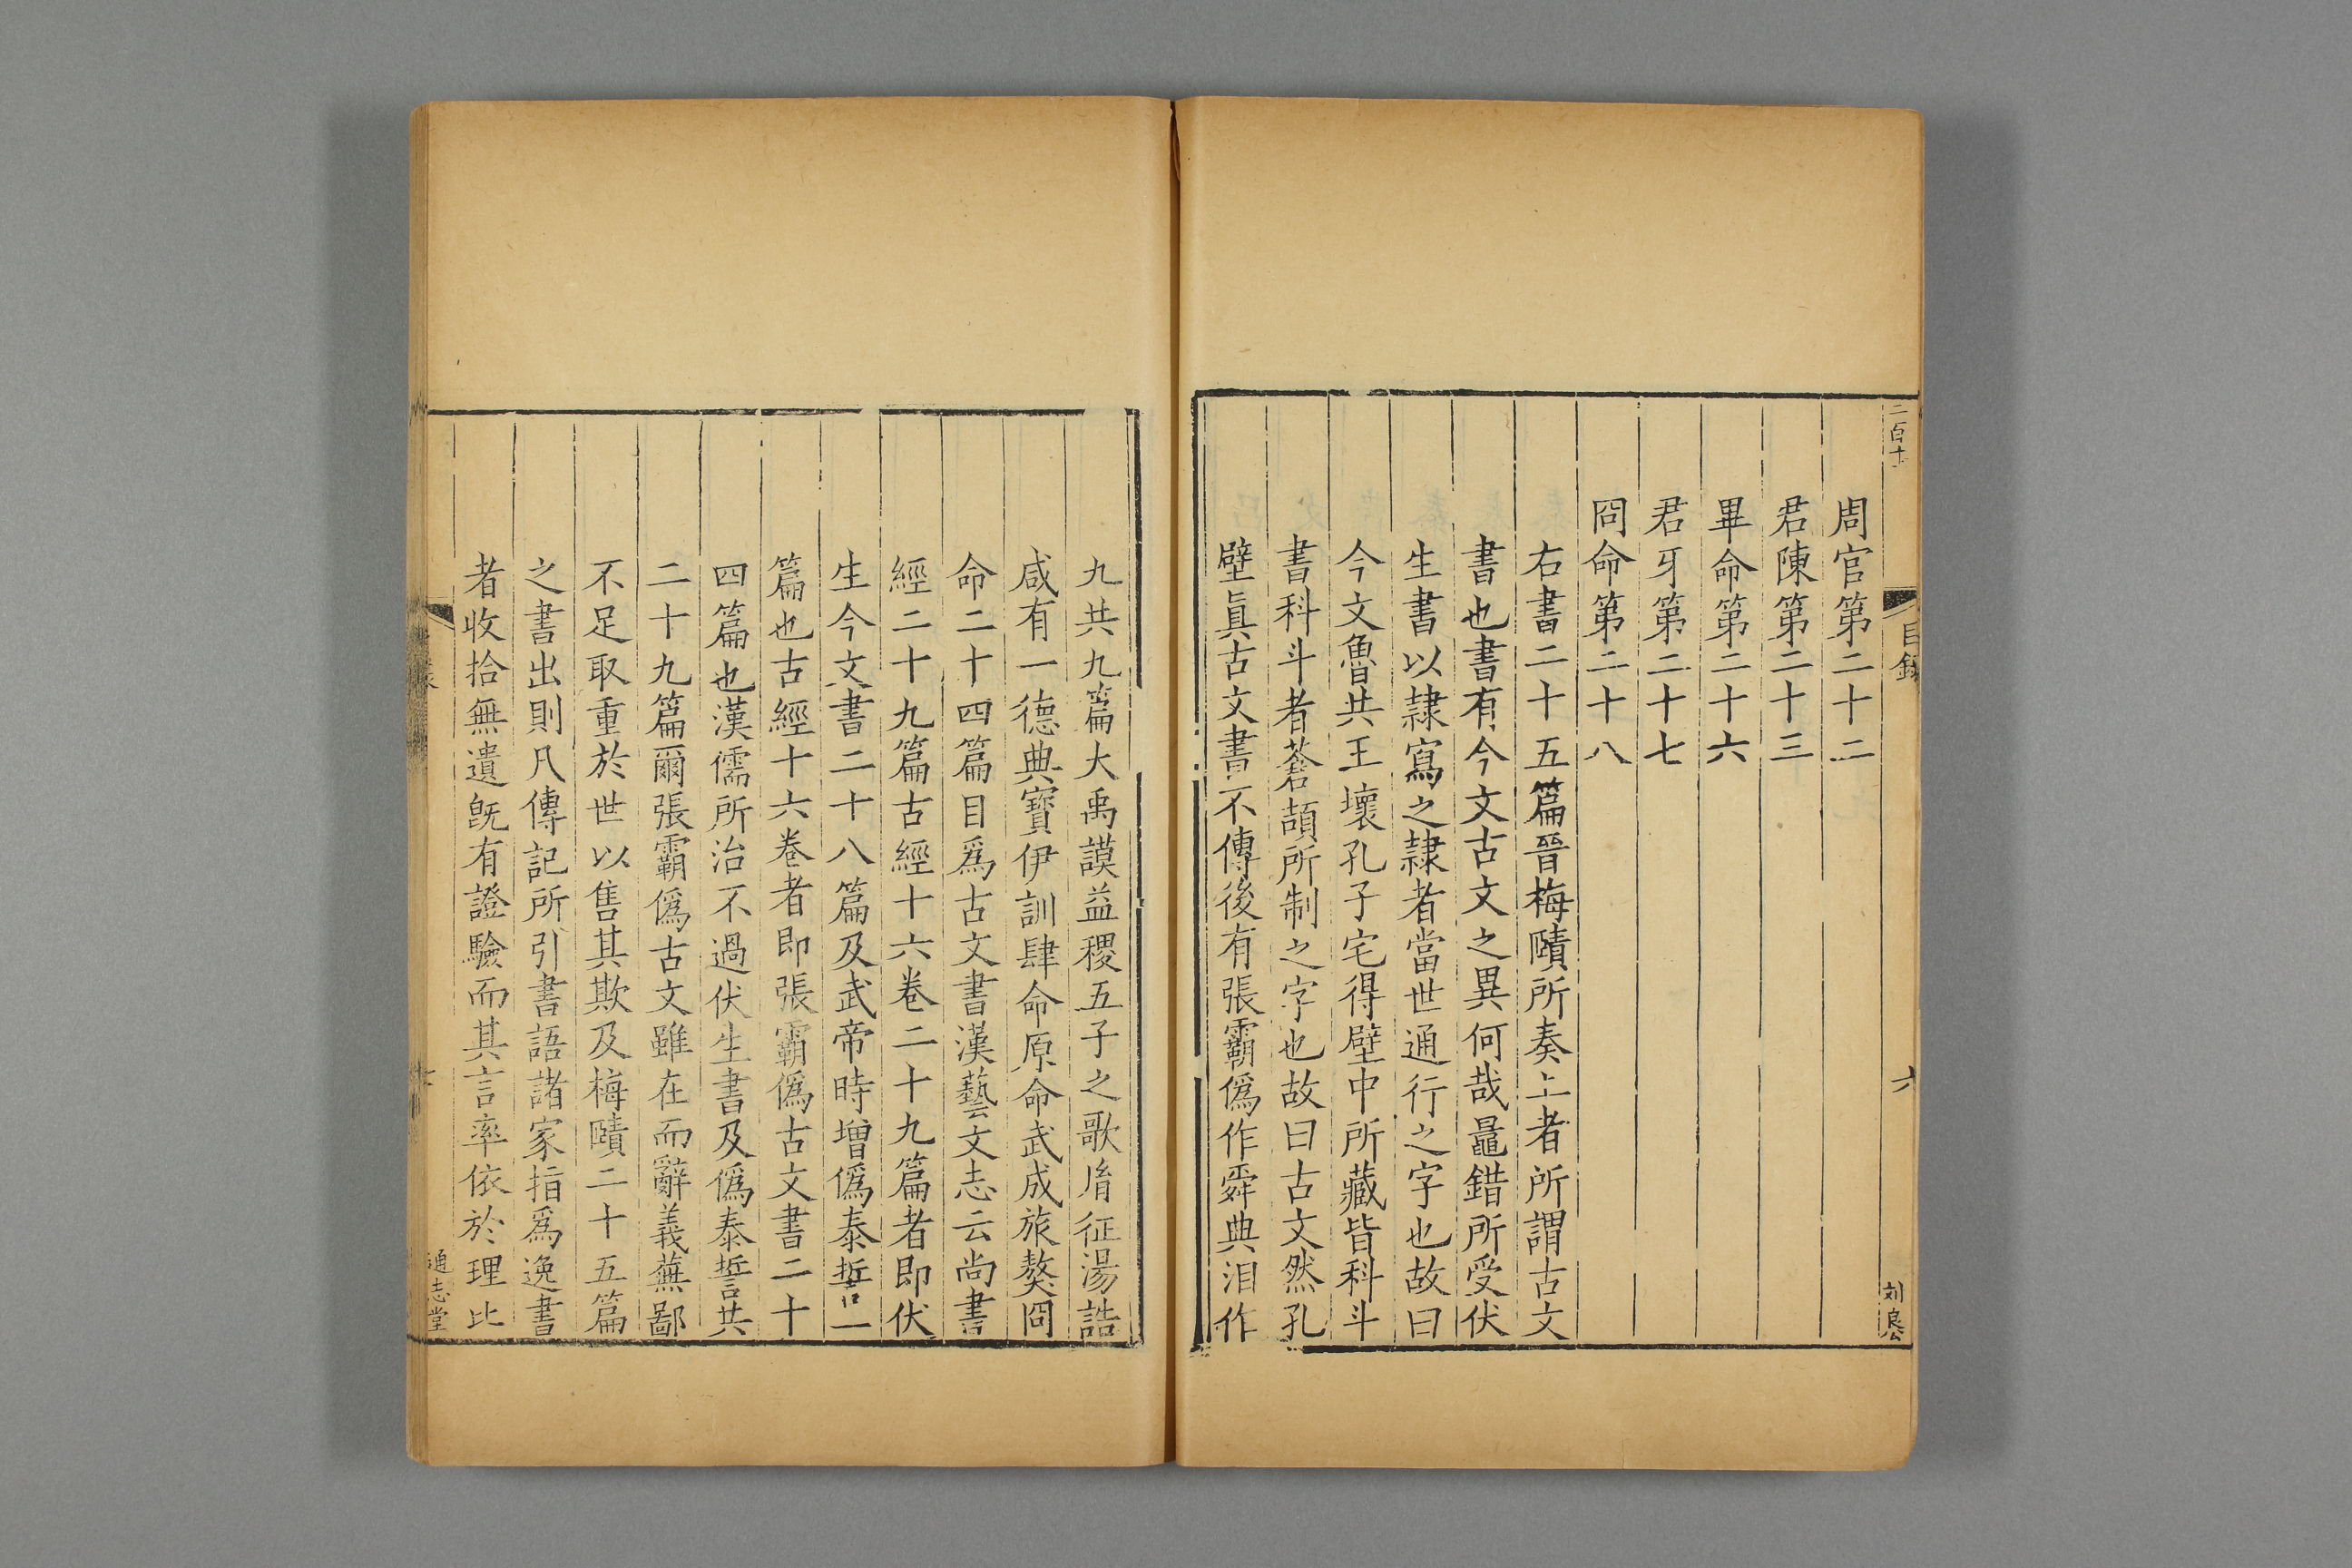 二百十
目錄
六
刘良公
周官第二十二
君陳第二十三
畢命第二十六
君牙第二十七
冏命第二十八
右書二十五篇晉梅賾所奏上者所謂古文
書也書有今文古文之異何哉鼂錯所受伏
生書以隸寫之隸者當世通行之字也故曰
今文魯共王壞孔子宅得壁中所藏皆科斗
書科斗者蒼頡所制之字也故曰古文然孔
壁眞古文書不傳後有張霸僞作舜典汨作
九共九篇大禹謨益稷五子之歌胤征湯誥
咸有一德典寶伊訓肆命原命武成旅獒冏
命二十四篇目爲古文書漢藝文志云尚書
經二十九篇古經十六卷二十九篇者即伏
生今文書二十八篇及武帝時增僞泰誓一
篇也古經十六卷者即張霸僞古文書二十
四篇也漢儒所治不過伏生書及僞泰誓共
二十九篇爾張霸僞古文雖在而辭義蕪鄙
不足取重於世以售其欺及梅賾二十五篇
之書出則凡傳記所引書語諸家指爲逸書
者收拾無遺旣有證驗而其言率依於理比
通志堂